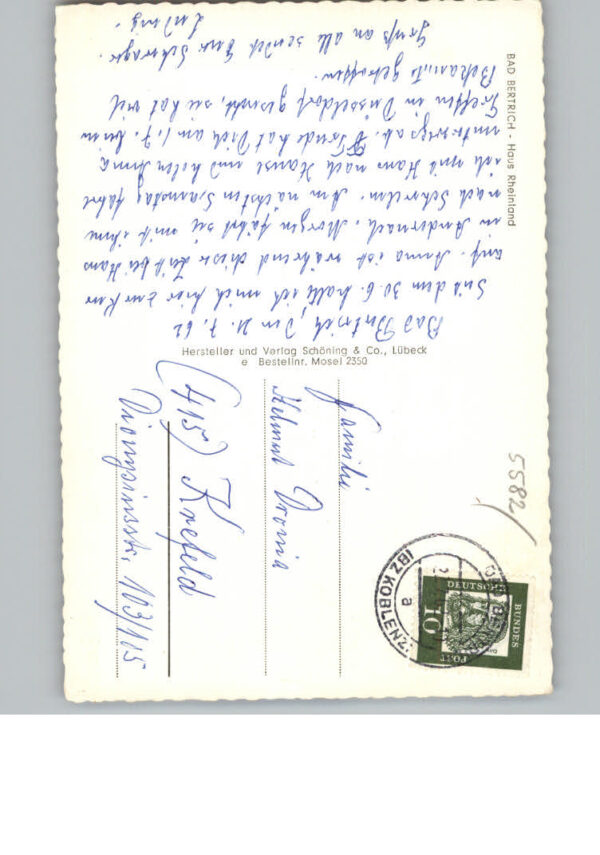 BAD BERTRICH - Haus Rheinland
Bad Bertrich, den 21.7.62
Seit dem 30.6. halte ich mich hier zur Kur
auf. Anna ist während dieser Zeit bei Hans
in Andernach. Morgen fährt sie mit ihm
nach Schwelm. Am nächsten Samstag fährt
ich mit Hans nach Hause und holen Anna
unterwegs ab. Trude hat Dich am 1.7. beim
Treffen in Düsseldorf gesucht, sie hat viel
Bekannte getroffen.
Gruß an alle sendet Euer Schwager
Ludwig.
Hersteller und Verlag Schöning & Co., Lübeck
e Bestellnr. Mosel 2350
Familie
Helmut
(415) Krefeld
Dionysiusstr. 103/115
5582/
BAD BERTRICH
(BZ KOBLENZ)
a
DEUTSCHE
BUNDES
POST
10